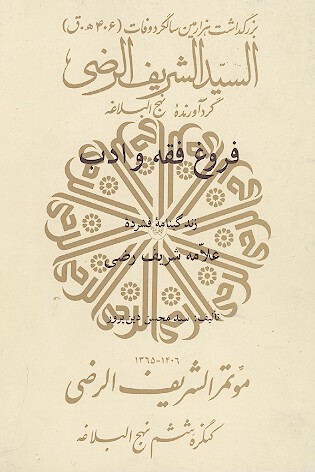 بزرگداشت هزارمین سالگرد وفات (۴۰۶ ه.ق)
السید الشریف الرضی
گردآورندهٔ نهج البلاغه
فروغ فقه و ادب
زندگینامهٔ فشردهٔ
علاّمه شریف رضی
تالیف: سید محسن دین پرور
۱۳۶۵-۱۴۰۶
مؤتمر الشریف الرضی
کنگرهٔ ششم نهج البلاغه